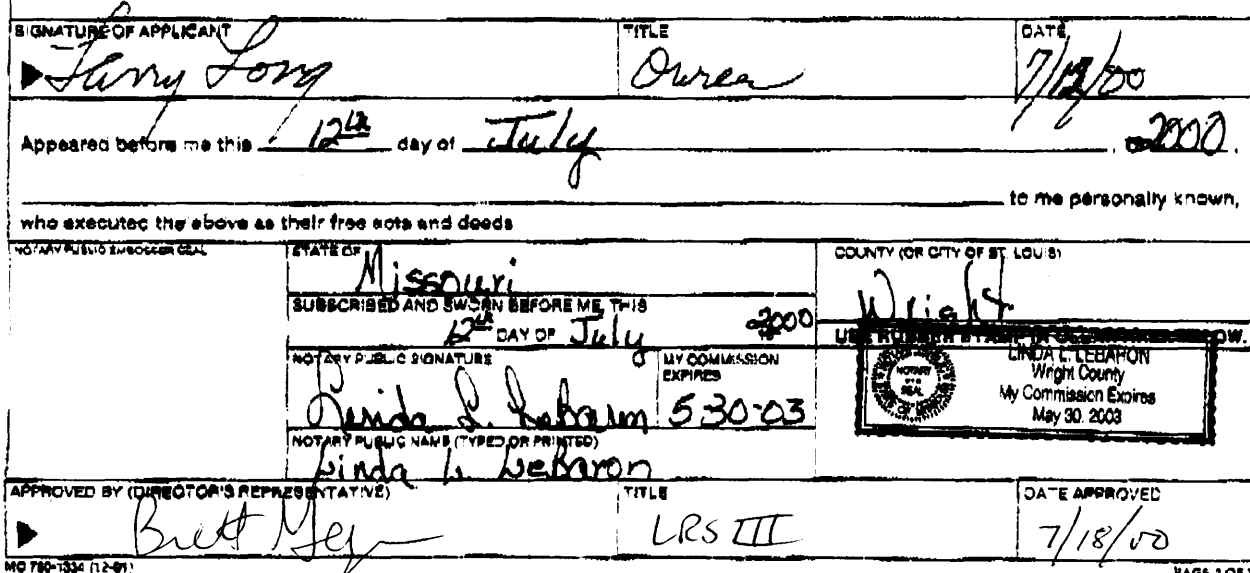 SIGNATURE OF APPLICANT TITLE DATE
Larry Long Owner 7/12/00
Appeared before me this 12th day of July , 2000.
to me personally known,
who executed the above as their free acts and deeds
NOTARY PUBLIC EMBOSSER SEAL STATE OF COUNTY (OR CITY OF ST. LOUIS)
Missouri Wright
SUBSCRIBED AND SWORN BEFORE ME, THIS
12th DAY OF July 2000
USE RUBBER STAMP IN CLEAR AREA BELOW.
NOTARY PUBLIC SIGNATURE MY COMMISSION EXPIRES
Linda L. LeBaron 5-30-03
NOTARY SEAL
LINDA L. LEBARON
Wright County
My Commission Expires
May 30, 2003
NOTARY PUBLIC NAME (TYPED OR PRINTED)
Linda L. LeBaron
APPROVED BY (DIRECTOR'S REPRESENTATIVE) TITLE DATE APPROVED
Brett LRS III 7/18/00
MO 780-1334 (12-91)